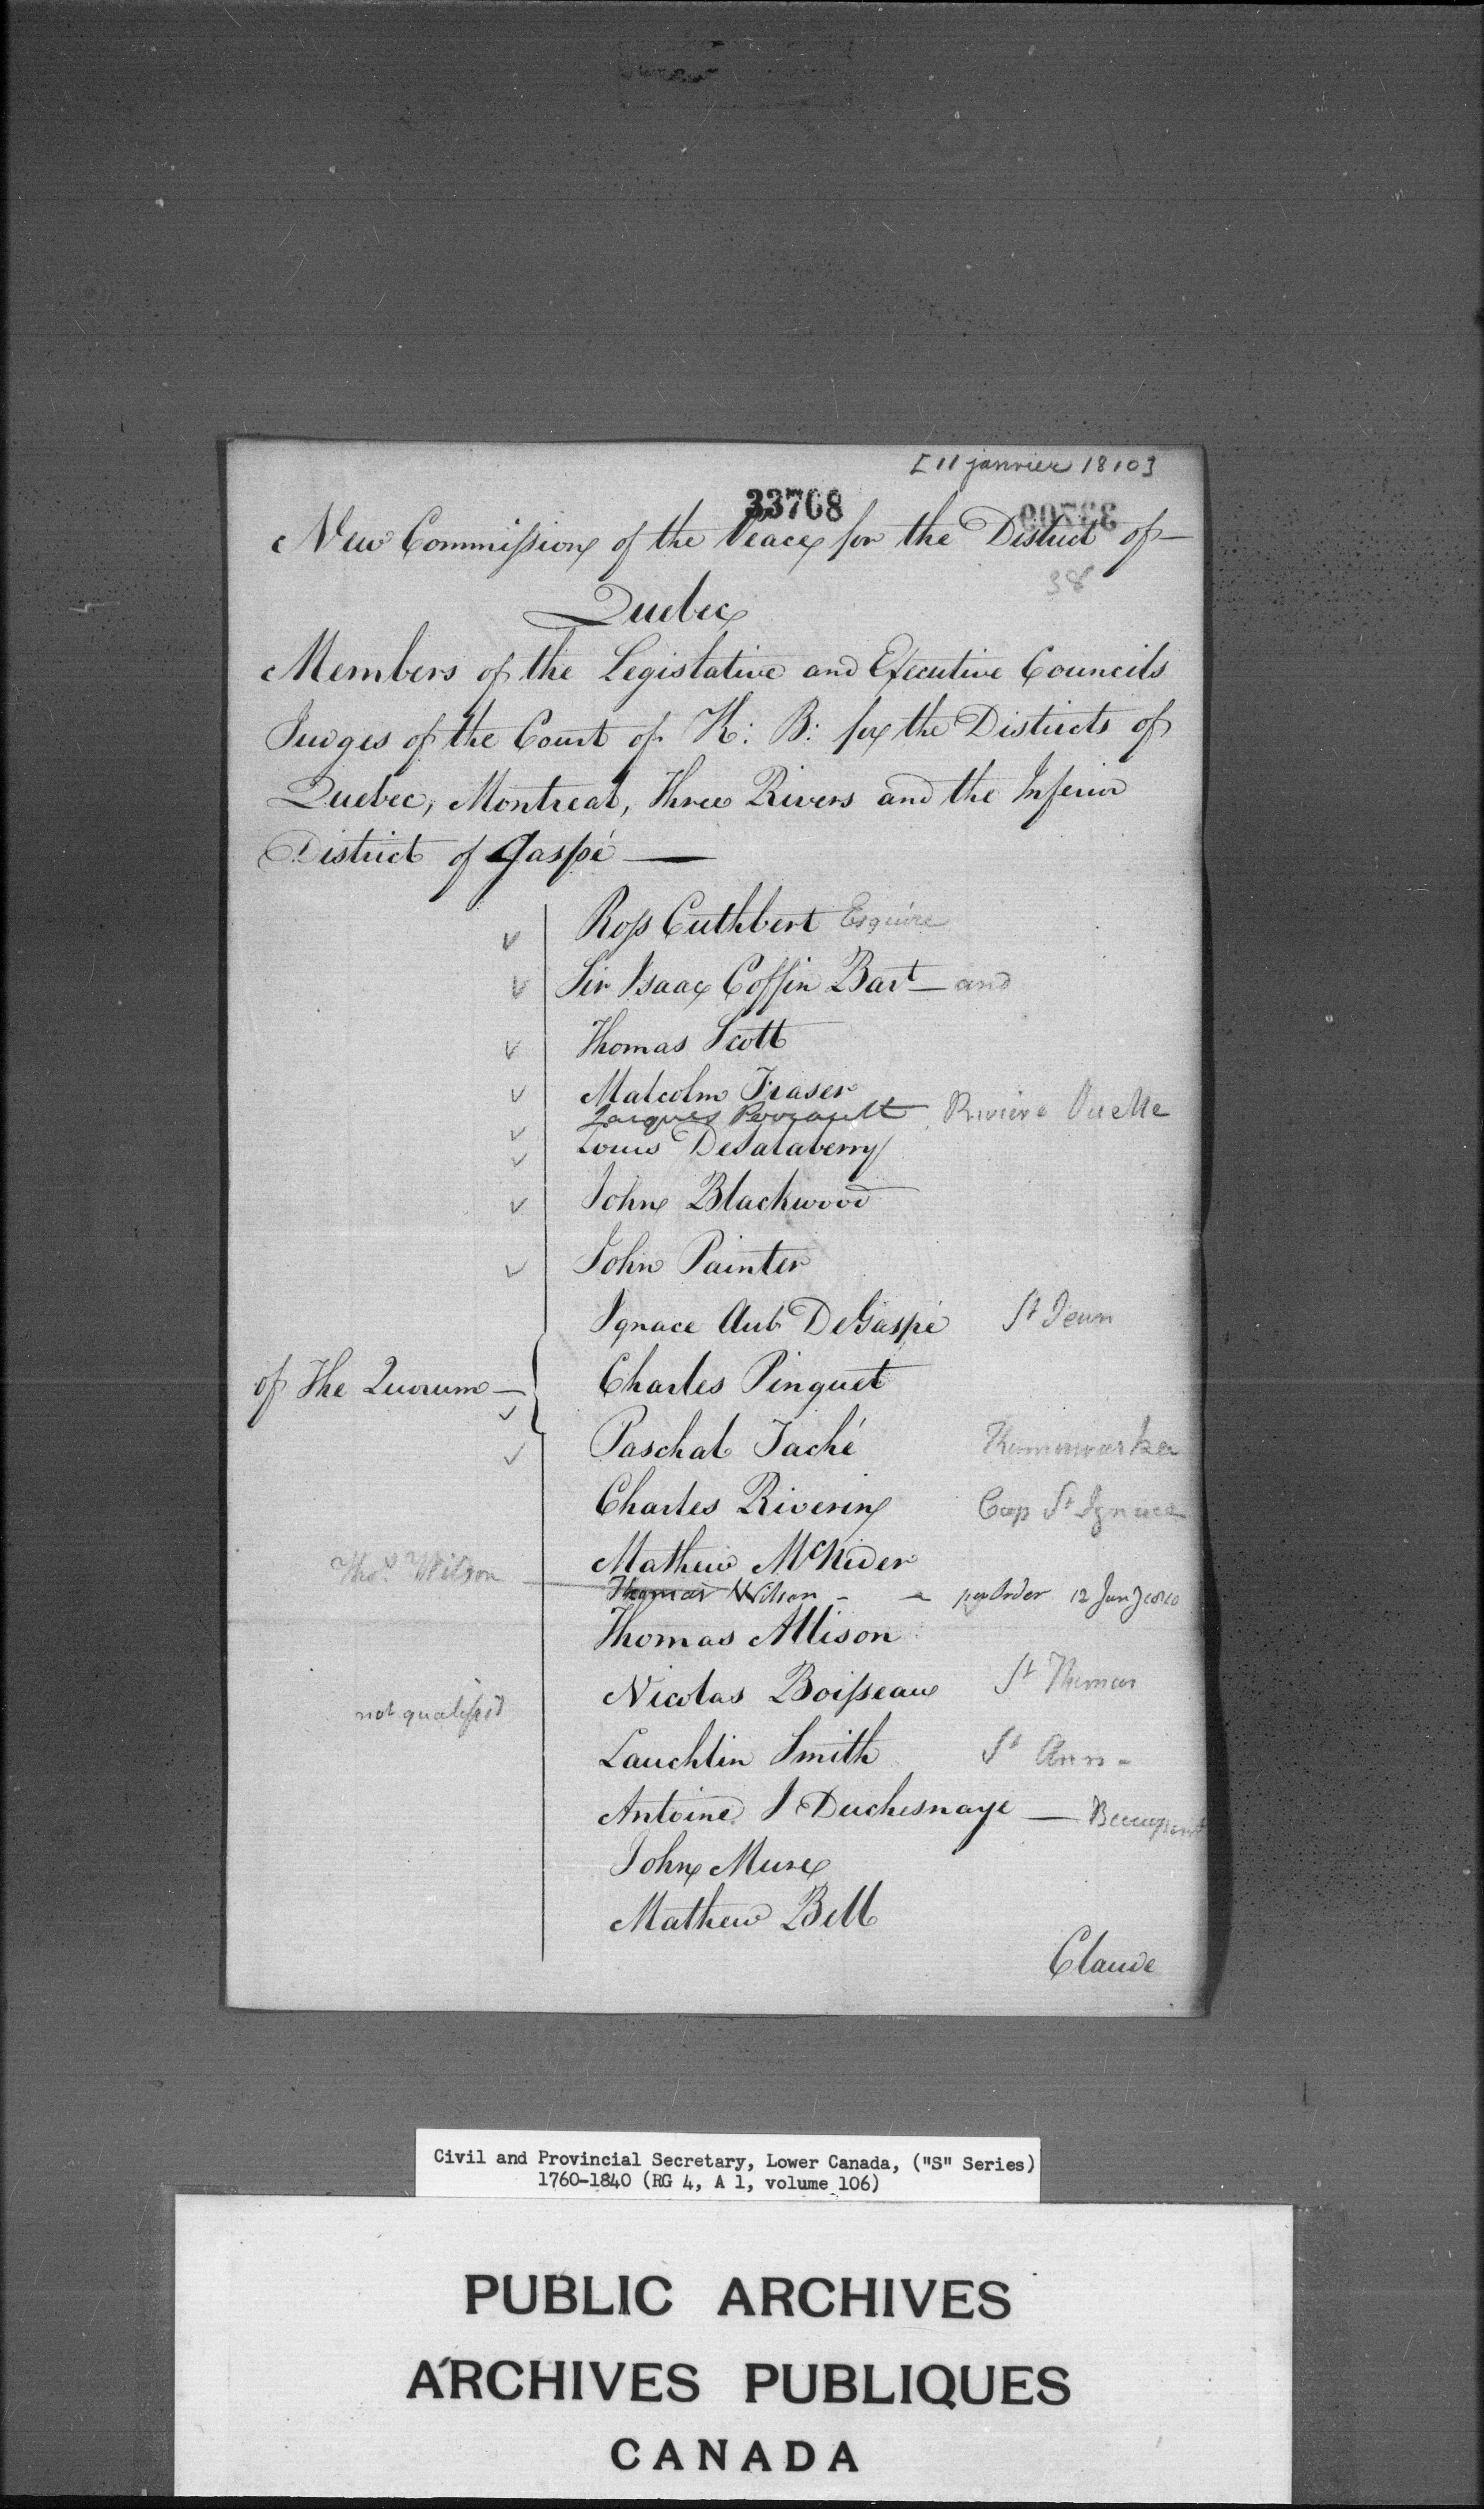 [11 janvier 1810]
33768
New Commission of the Peace for the District of
38
Quebec
Members of the Legislative and Executive Councils
Judges of the Court of K: B: for the Districts of
Quebec, Montreal, Three Rivers and the Inferior
District of Gaspé —
✓ Ross Cuthbert Esquire
✓ Sir Isaac Coffin Bart — and
✓ Thomas Scott
✓ Malcolm Fraser
✓ Jacques Perrault Riviere Ouelle
✓ Louis DeSalaberry
✓ John Blackwood
✓ John Painter
Ignace Aub. DeGaspé St Jean
of The Quorum — Charles Pinguet
✓ Paschal Taché Kamouraska
Charles Riverin Cap St Ignace
Mathew McNider
Thos. Wilson Thomas Wilson - - per Order 12 Jany 1810
Thomas Allison
not qualified Nicolas Boisseau St Thomas
Lauchlin Smith St Ann -
Antoine J Duchesnaye — Beauport
John Mure
Mathew Bell
Claude
Civil and Provincial Secretary, Lower Canada, ("S" Series)
1760-1840 (RG 4, A 1, volume 106)
PUBLIC ARCHIVES
ARCHIVES PUBLIQUES
CANADA